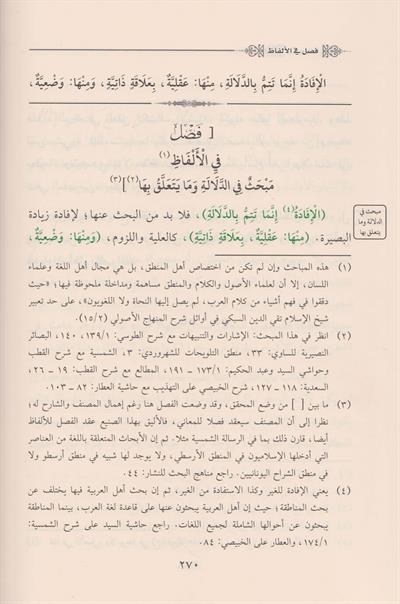 فصل في الألفاظ
الْإِفَادَةُ إِنَّمَا تَتِمُّ بِالدَّلَالَةِ، مِنْهَا: عَقْلِيَّةٌ، بِعَلَاقَةٍ ذَاتِيَّةٍ، وَمِنْهَا: وَضْعِيَّةٌ،
[ فَصْلٌ
فِي الْأَلْفَاظِ(١)
مَبْحَثٌ فِي الدَّلَالَةِ وَمَا يَتَعَلَّقُ بِهَا(٢)](٣)
مبحث في
الدلالة وما
يتعلق بها
(الْإِفَادَةُ(٤) إِنَّمَا تَتِمُّ بِالدَّلَالَةِ)، فلا بد من البحث عنها؛ لإفادة زيادة
البصيرة. (مِنْهَا: عَقْلِيَّةٌ، بِعَلَاقَةٍ ذَاتِيَّةٍ)، كالعلية واللزوم، (وَمِنْهَا: وَضْعِيَّةٌ،
(١) هذه المباحث وإن لم تكن من اختصاص أهل المنطق، بل هي مجال أهل اللغة وعلماء
اللسان، إلا أن لعلماء الأصول والكلام والمنطق مساهمة ومداخلة ملحوظة فيها؛ «حيث
دققوا في فهم أشياء من كلام العرب، لم يصل إليها النحاة ولا اللغويون»، على حد تعبير
شيخ الإسلام تقي الدين السبكي في أوائل شرح المنهاج الأصولي (١٥/٢)
(٢) انظر في هذا المبحث: الإشارات والتنبيهات مع شرح الطوسي: ١٣٩/١، ١٤٠، البصائر
النصيرية للساوي: ٣٣، منطق التلويحات للسهروردي: ٣، الشمسية مع شرح القطب
وحواشي السيد وعبد الحكيم: ١٧٣/١ – ١٩١، المطالع مع شرح القطب: ١٩ – ٢٦،
السعدية: ١١٨ – ١٢٧، شرح الخبيصي على التهذيب مع حاشية العطار: ٨٢ – ١٠٣.
(٣) ما بين [ ] من وضع المحقق، وقد وضعت الفصل هنا رغم إهمال المصنف والشارح له؛
نظرا إلى أن المصنف سيعقد فصلا للمعاني، فالأليق بهذا الصنيع عقد الفصل للألفاظ
أيضا، قارن ذلك بما في الرسالة الشمسية مثلا. ثم إن الأبحاث المتعلقة باللغة من العناصر
التي أدخلها الإسلاميون في المنطق الأرسطي، ولا يوجد لها شبيه في منطق أرسطو ولا
في منطق الشراح اليونانيين. راجع مناهج البحث للنشار: ٤٤.
(٤) يعني الإفادة للغير وكذا الاستفادة من الغير، ثم إن بحث أهل العربية فيها يختلف عن
بحث المناطقة؛ حيث إن أهل العربية يبحثون عنها على قاعدة لغة العرب، بينما المناطقة
يبحثون عن أحوالها الشاملة لجميع اللغات. راجع حاشية السيد على شرح الشمسية:
١٧٤/١، والعطار على الخبيصي: ٨٤.
٢٧٠